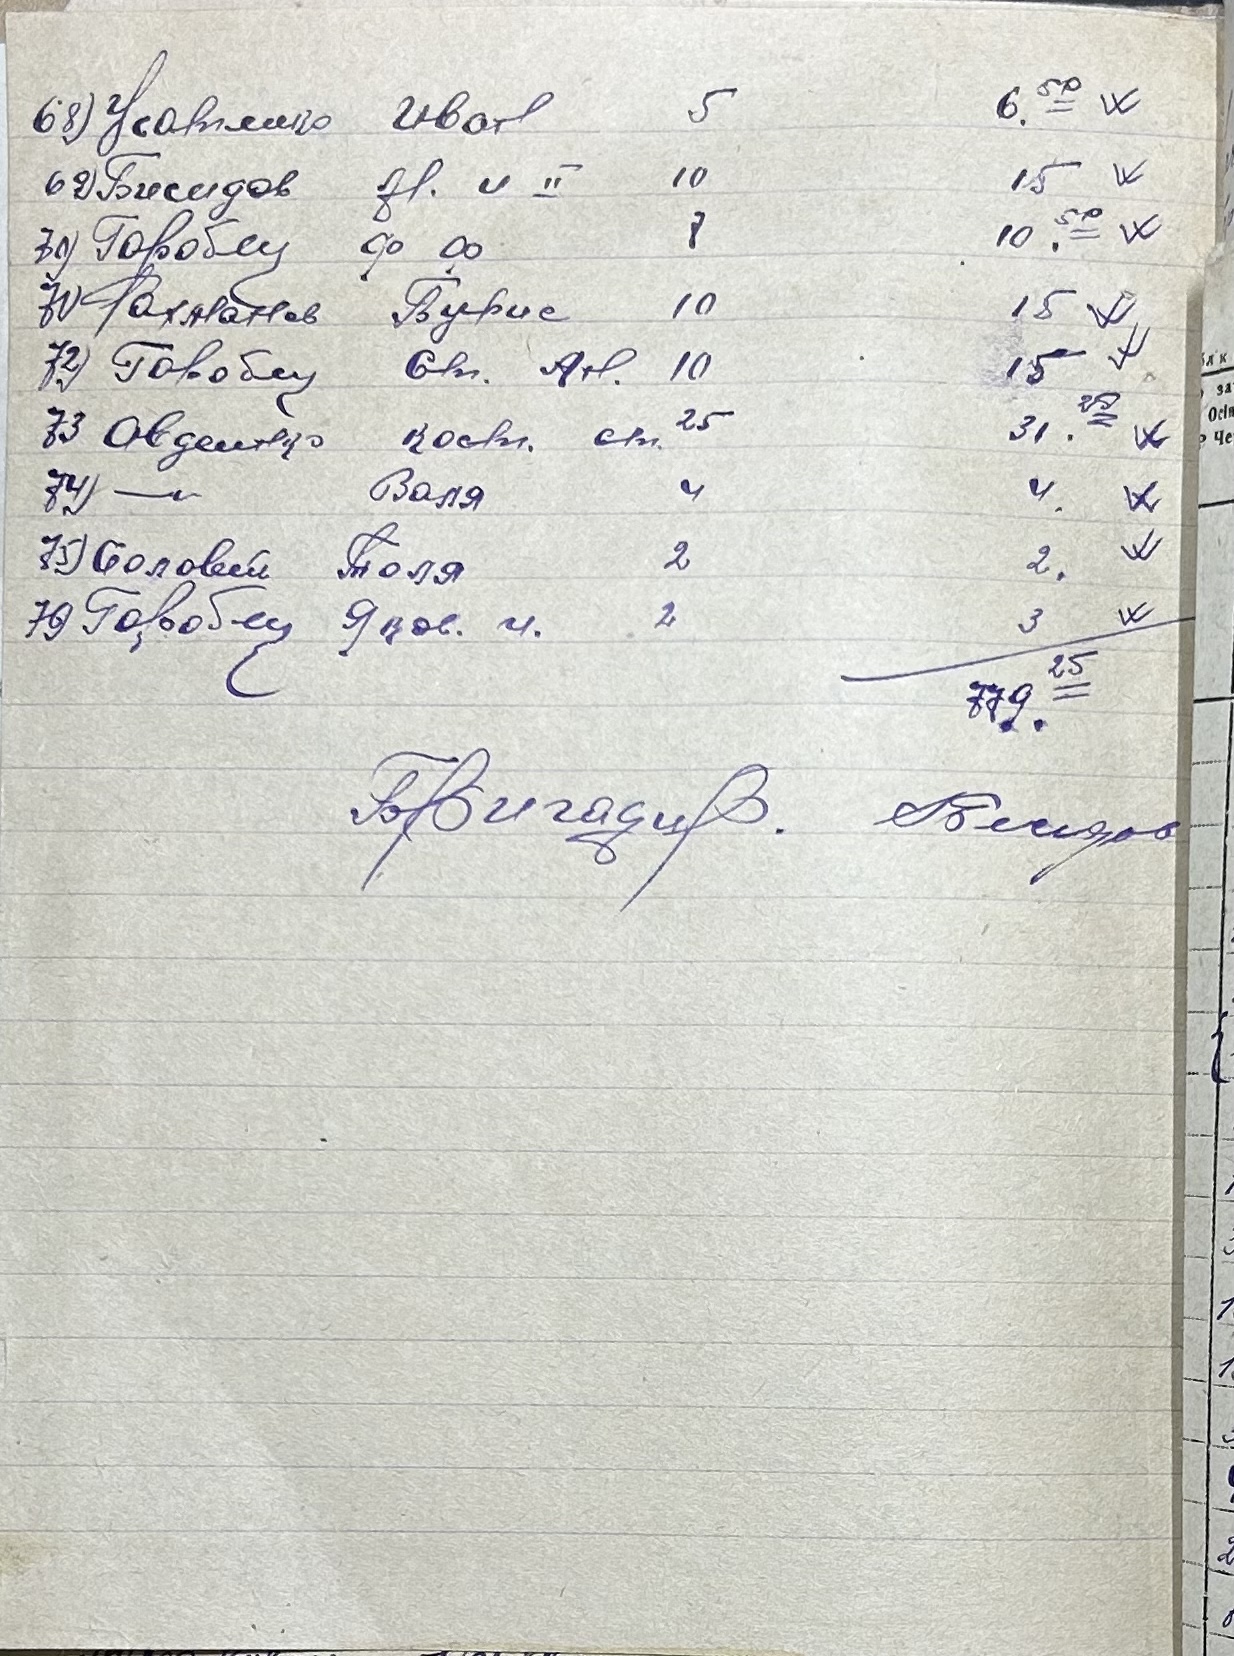 68) Усатенко Иван 5 6.50
69) Бисидов И II 10 15
70) Горобец Ф Ф 7 10.50
71) Рахманов Борис 10 15
72) Горобец Ст. Ан. 10 15
73 Овденко Кост. ст. 25 31.25
74) —"— Валя 4 4.
75) Соловей Толя 2 2.
76) Горобец Яков. И. 2 3
779.25
Бригадир.